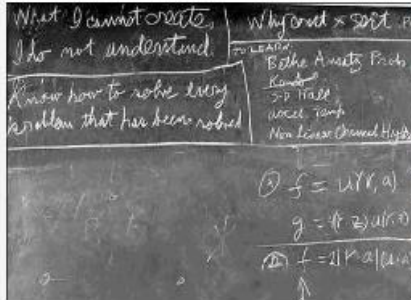 What I cannot create,
I do not understand.
Know how to solve every
problem that has been solved
Why const × sort
TO LEARN:
Bethe Ansatz Prob.
Kondo
2-D Hall
accel. Temp
Non Linear Classical Hydro
f = u(r, a)
g = u(r, z)
f = 2|r·a|